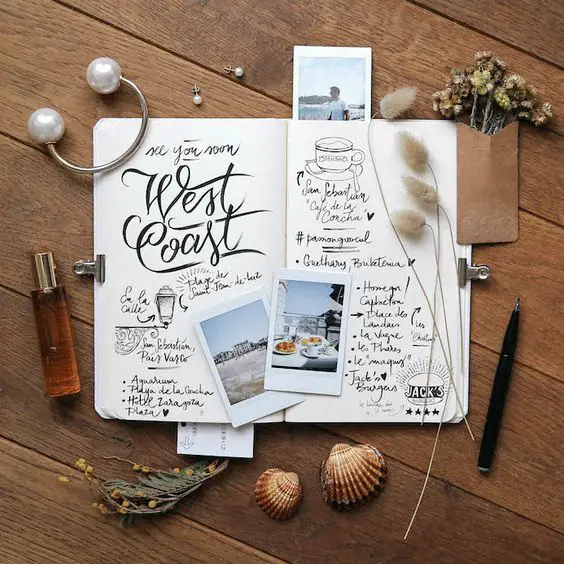 see you soon
West
Coast
Plage de
Saint-Jean-de-luz
En la
calle
San Sebastian,
País Vasco
• Aquarium
• Playa de la Concha
• Hôtel Zaragoza
Plaza
San Sebastian
"Café de la
Concha"
#pasmongrecul
• Guethary Briketenia
• Homegn!
Capbreton
→ Place des
Landais
• La Vigne
• les Phares
• le "maquis"
• Jack's
Burgers
les
JACK'S
BURGERS